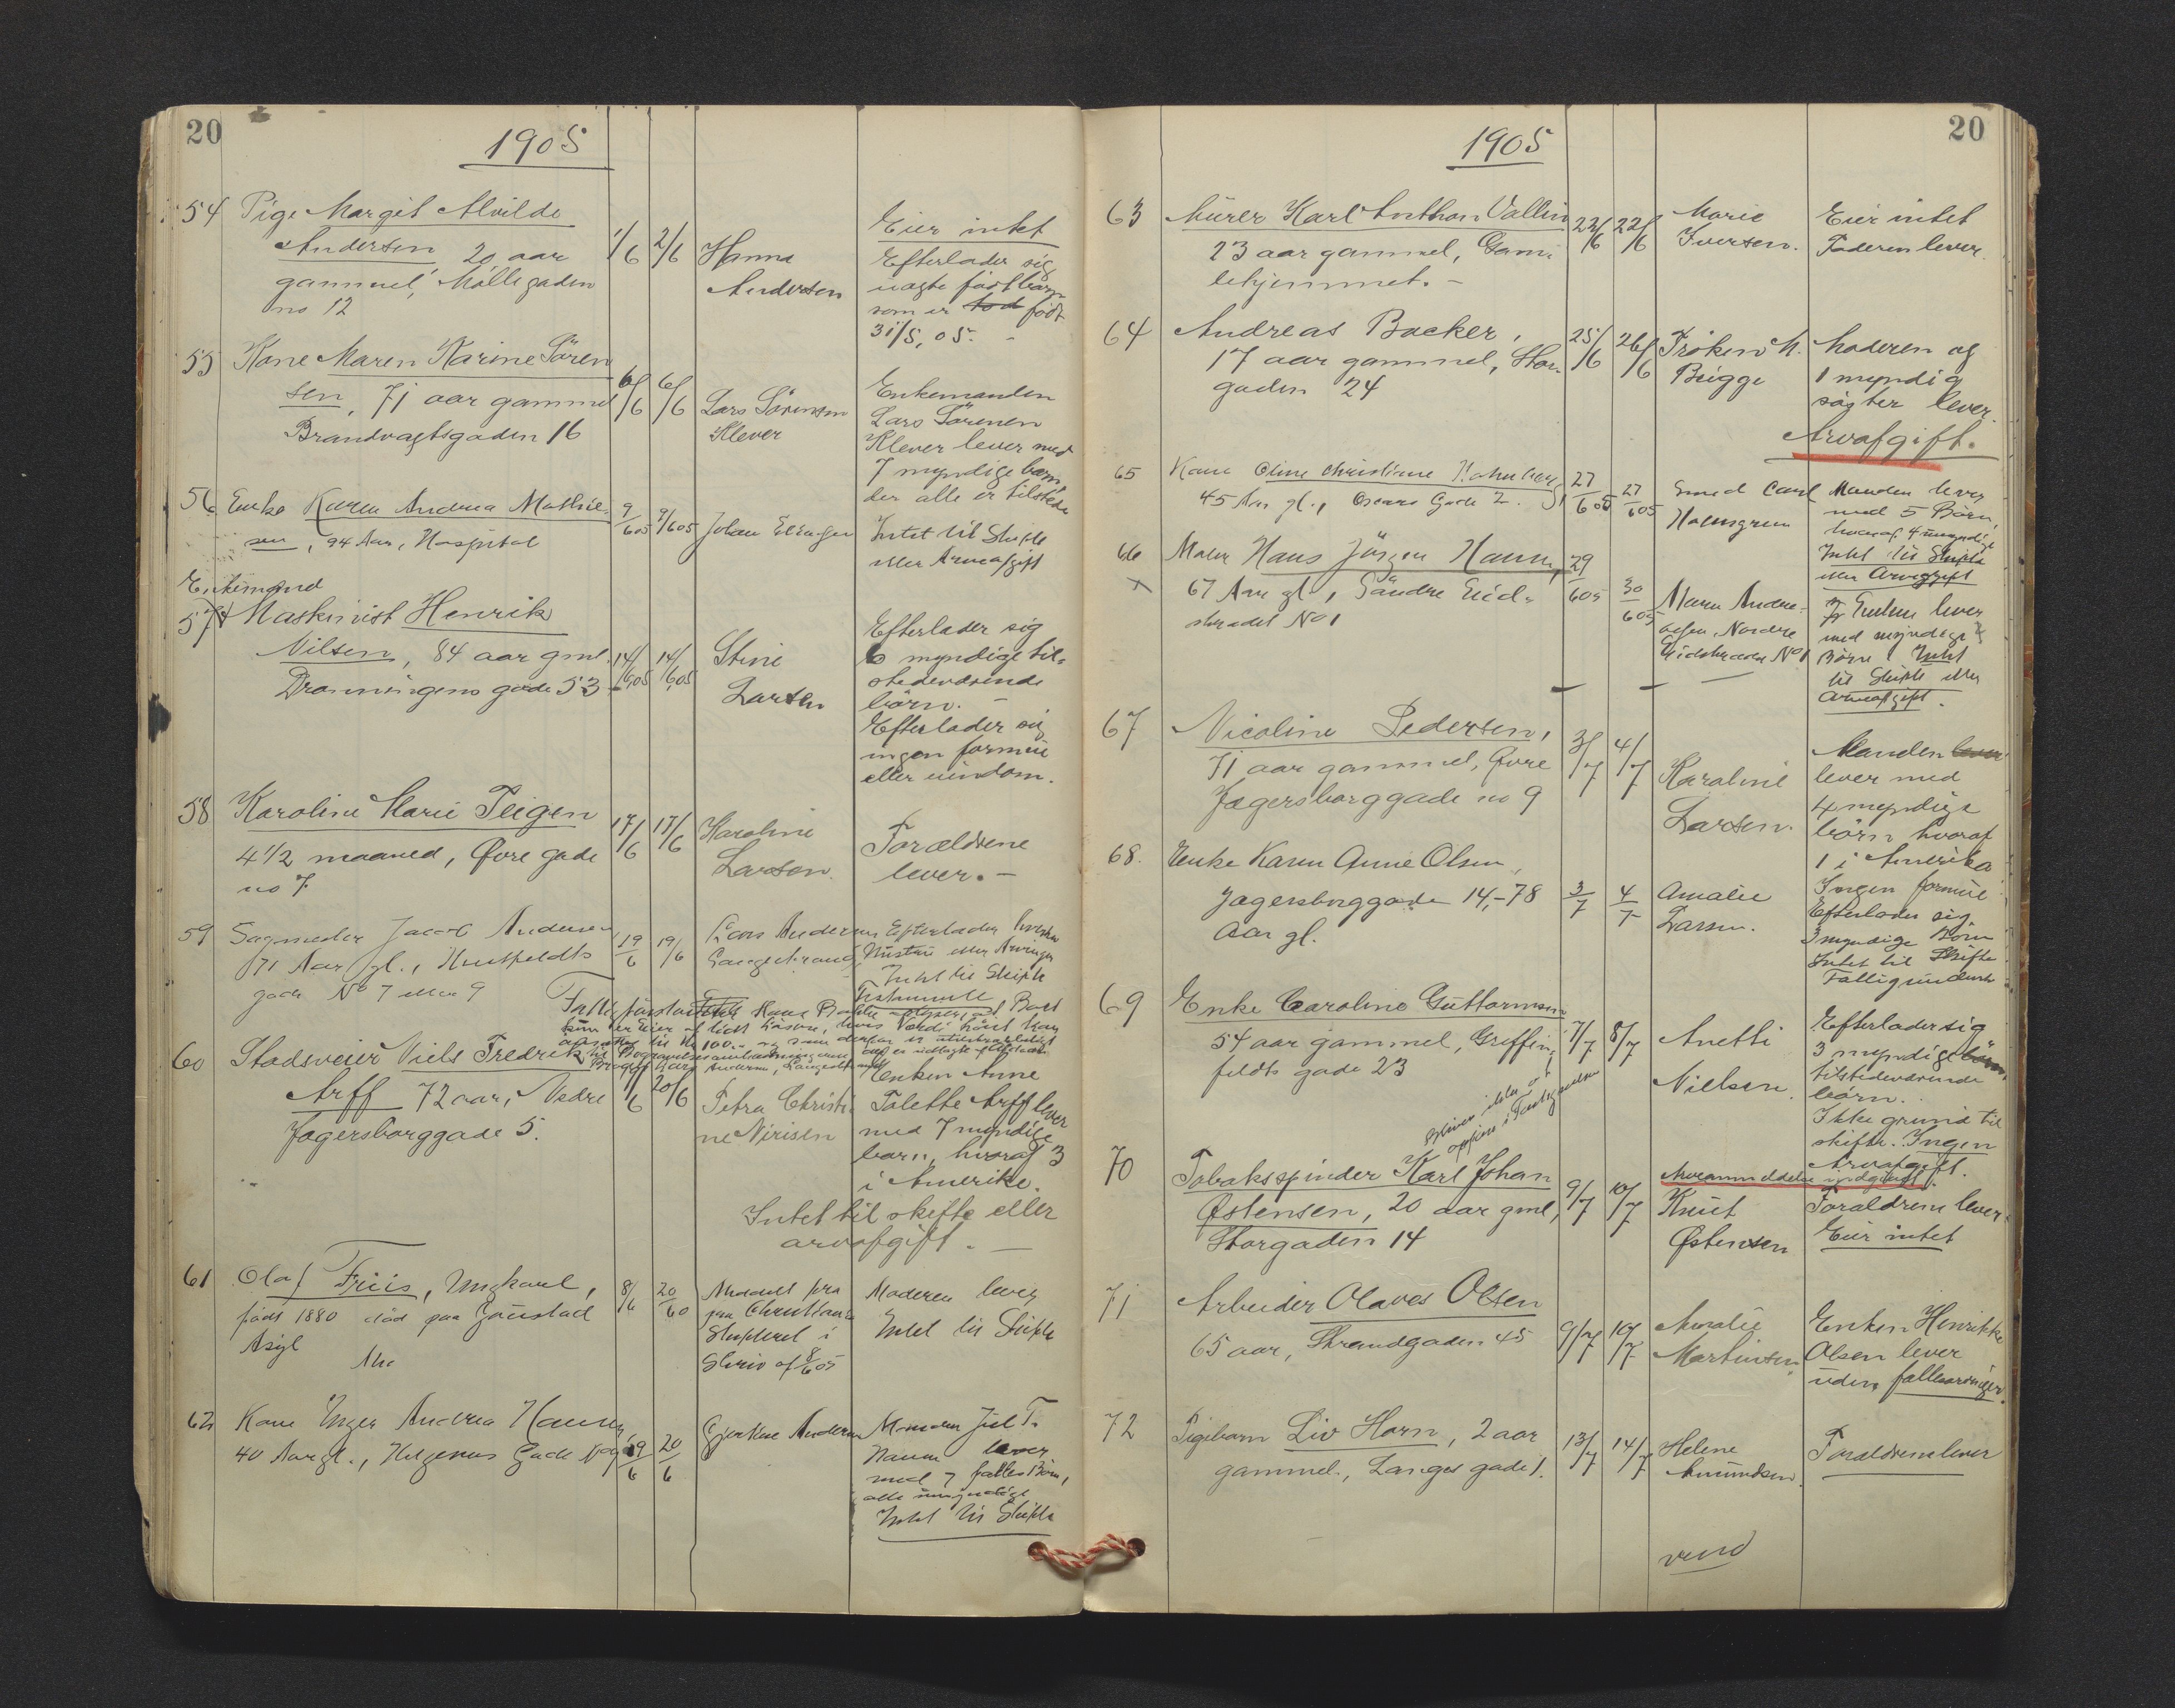 20
1905
54 Pige Margit Alvilde
Andersen, 20 aar
gammel, Möllegaden
no 12
1/6 2/6
Hanna
Andersen
Eier intet
Efterlader sig
uægte født barn
som er tod født
31/5, 05. -
55 Kone Maren Karine Sören
sen, 71 aar gammel
Brandvagtsgaden 16
6/6 6/6
Lars Sörensen
Klever
Enkemanden
Lars Sörensen
Klever lever med
7 myndige børn,
der alle er tilstede
56 Enke Karen Andrea Mathie-
sen, 94 Aar, Hospital
9/605 9/605
Johan Ellingsen
Intet til Skifte
eller Arveafgift
Enkemand
57 Maskinist Henrik
Nilsen, 84 aar gml.
Dronningens gade 53
14/605 14/605
Stine
Larsen
Efterlader sig
6 myndige til-
stedeværende
börn. -
Efterlader sig
ingen formue
eller eiendom.
58 Karoline Marie Teigen
4 1/2 maaned, Øvre gade
no 7.
17/6 17/6
Karoline
Larsen.
Forældrene
lever. -
59 Sagmester Jacob Andersen
71 Aar gl., Huitfeldts
gade No 7 eller 9
19/6 19/6
Lars Andersen
Langestrand
Efterlader hverken
Hustru eller Arvinger
Intet til Skifte
Testamente
60 Stadsveier Niels Fredrik
Arff 72 aar, Nedre
Jægersborggade 5.
/6 20/6
Petra Christi
ne Nirisen
Enken Anne
Tolette Arff lever
med 7 myndige
barn, hvoraf 3
i Amerika.
Intet til skifte eller
arvafgift. -
61 Olaf Friis, Ungkarl,
født 1880 død paa Gaustad
Asyl
8/6 20/60
Anmeldt fra
Christiania
Skifteret i
Skriv af 8/605
Moderen lever
Intet til Skifte
62 Kone Inger Andrea Hansen
40 Aar gl., Helgenes Gade No
19/6 20/6
Gjertine Andersen
Manden Juel T.
Hansen lever
med 7 fælles Børn,
alle umyndige
Intet til Skifte
20
1905
63 Murer Karl Anthon Vallin
23 aar gammel, Gam-
lehjemmet. -
22/6 22/6
Marie
Iversen.
Eier intet
Faderen lever.
64 Andreas Backer,
17 aar gammel, Stor-
gaden 24
25/6 26/6
Frøken M.
Brigge
Moderen og
1 myndig
søster lever.
Arvafgift.
65 Kone Oline Christiane Holmberg
45 Aar gl., Oscars Gade 2.
27/605 27/605
Smed Carl
Holmgren
Manden lever
med 5 Børn,
hvoraf 4 umyndige
Intet til Skifte
eller Arveafgift
66 Maler Hans Jörgen Hansen,
67 Aar gl., Söndre Eid-
strædet No 1
29/605 30/605
Maren Andre-
asen, Nordre
Eidstrædet No 1
Enken lever
med myndige
Börn Intet
til Skifte eller
Arveafgift.
67 Nicoline Pedersen,
71 aar gammel, Øvre
Jægersborggade no 9
3/7 4/7
Karoline
Larsen.
Manden lever
lever med
4 myndige
börn hvoraf
1 i Amerika
Ingen formue
68. Enke Karen Anne Olsen,
Jægersborggade 14, - 78
Aar gl.
3/7 4/7
Amalie
Larsen.
Efterlader sig
3 myndige Börn
Intet til Skifte
Fattigunderst
69 Enke Caroline Guttormsen
54 aar gammel, Griffen
feldts gade 23
7/7 8/7
Anetti
Nielsen.
Efterlader sig
3 myndige børn
tilstedeværende
børn.
Ikke grund til
skifte. Ingen
Arvafgift.
70 Tobaksspinder Karl Johan
Østensen, 20 aar gml,
Storgaden 14
9/7 10/7
Knut
Østensen
Forældrene lever.
Eier intet
71 Arbeider Olaves Olsen
65 aar, Strandgaden 45
9/7 10/7
Amalie
Martinsen
Enken Henrikke
Olsen lever
uden fællesarvinger.
72 Pigebarn Liv Horn, 2 aar
gammel, Langes gade 1.
13/7 14/7
Helene
Amundsen.
Forældrene lever
vend